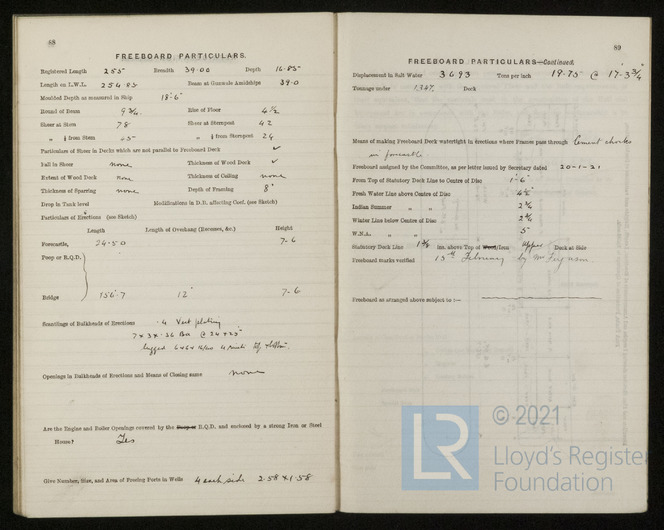 88
FREEBOARD PARTICULARS.
Registered Length 255 Breadth 39.00 Depth 16.85
Length on L.W.L. 254.83 Beam at Gunwale Amidships 39.0
Moulded Depth as measured in Ship 18'-6"
Round of Beam 9 3/4 Rise of Floor 4 1/2
Sheer at Stem 78 Sheer at Sternpost 42
" 1/8 from Stem " 1/8 from Sternpost 24
Particulars of Sheer in Decks which are not parallel to Freeboard Deck ✓
Fall in Sheer none Thickness of Wood Deck ✓
Extent of Wood Deck none Thickness of Ceiling none
Thickness of Sparring none Depth of Framing 8"
Drop in Tank level Modifications in D.B. affecting Coef. (see Sketch)
Particulars of Erections (see Sketch)
Length Length of Overhang (Recesses, &c.) Height
Forecastle, 24.50 7-6
Poop or R.Q.D.
Bridge 156.7 12" 7-6
Scantlings of Bulkheads of Erections .4 Vert plating
7 x 3 x .36 @ 24 x 25"
lugged
Openings in Bulkheads of Erections and Means of Closing same none
Are the Engine and Boiler Openings covered by the Poop or R.Q.D. and enclosed by a strong Iron or Steel
House? Yes
Give Number, Size, and Area of Freeing Ports in Wells 4 each side 2.58 x 1.58
89
FREEBOARD PARTICULARS—Continued
Displacement in Salt Water 3693 Tons per inch 19.75 @ 17'-3 3/4"
Tonnage under Deck
Means of making Freeboard Deck watertight in erections where Frames pass through Cement chocks
in forecastle.
Freeboard assigned by the Committee, as per letter issued by Secretary dated 20-1-21
From Top of Statutory Deck Line to Centre of Disc 1'-6"
Fresh Water Line above Centre of Disc 4 1/2"
Indian Summer " " 2 3/4
Winter Line below Centre of Disc 2 3/4
W.N.A. " " 5"
Statutory Deck Line 1 3/8 ins. above Top of Wood/Iron Upper Deck at Side
Freeboard Marks verified 15th February by Mr Ferguson
Freeboard as arranged above subject to :—
© 2021
LR
Lloyd's Register
Foundation